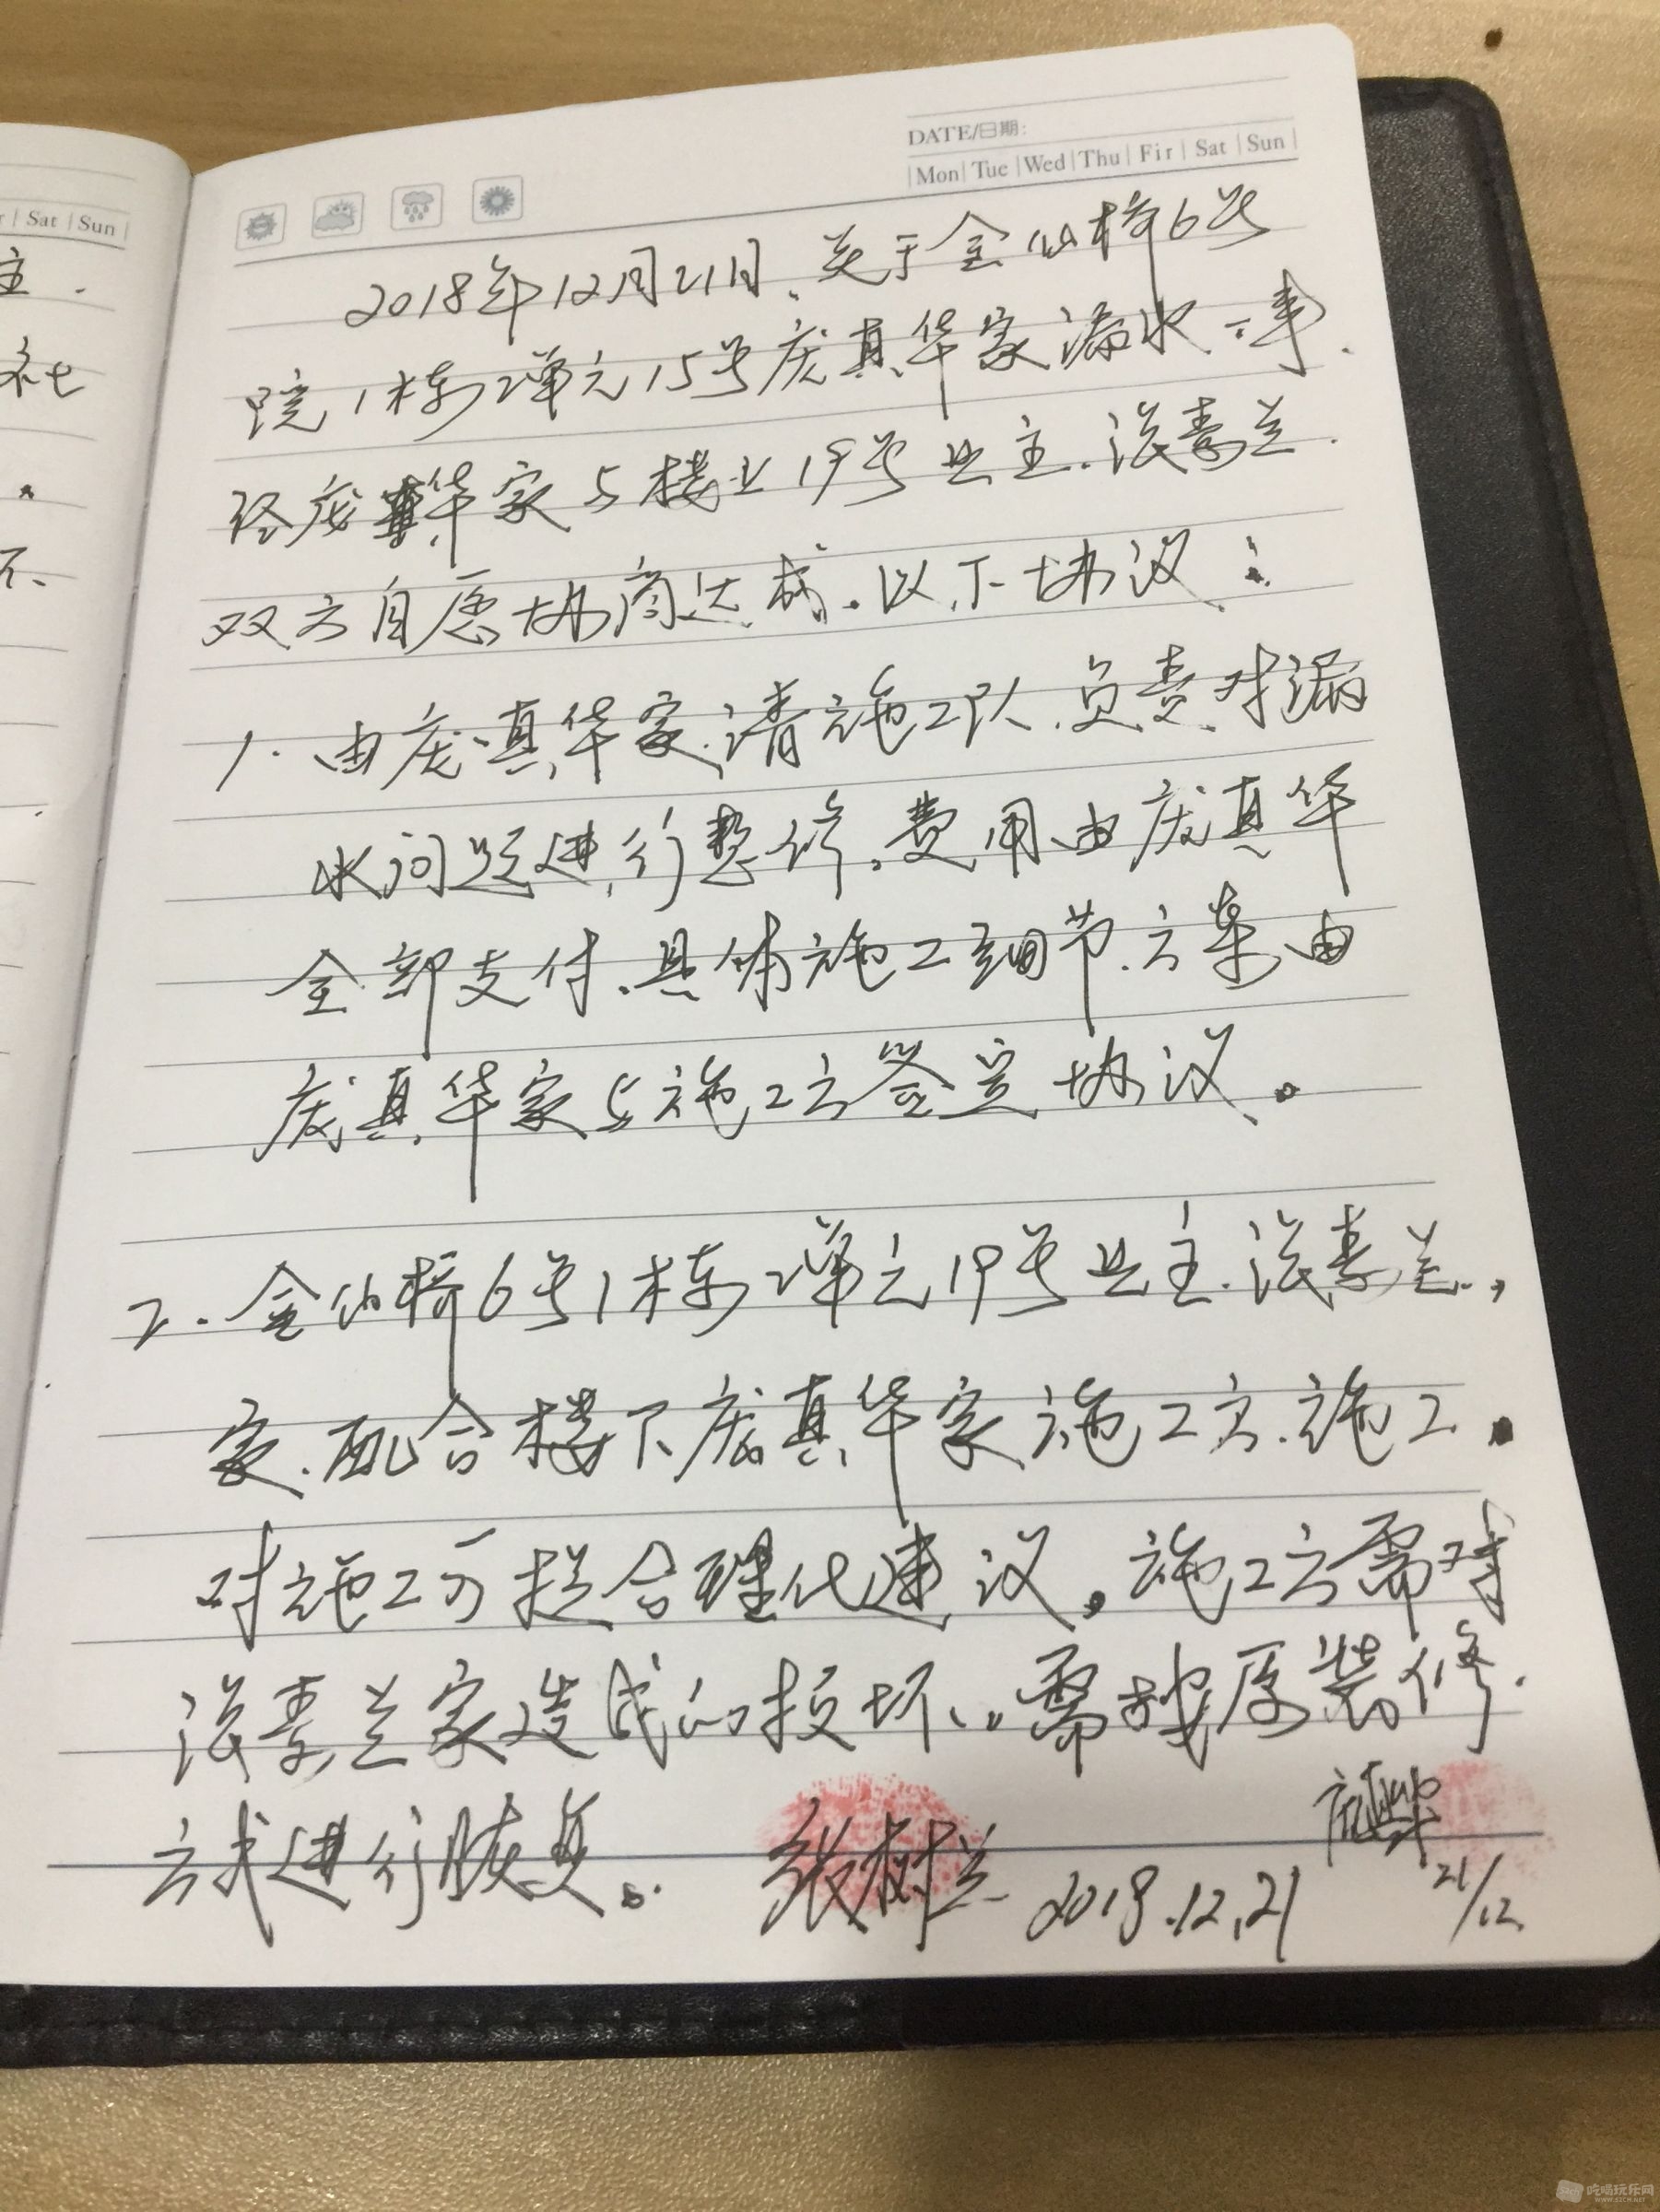 r | Sat | Sun |
主.
社
不、
DATE/日期:
|Mon| Tue |Wed|Thu| Fir | Sat | Sun |
2018年12月21日、关于金仙桥6号
院1栋2单元15号庞真华家漏水一事.
经庞真华家与楼上19号业主.
双方自愿协商达成.以下协议:
1.由庞真华家.请施工队.负责.对漏
水问题进行整修.费用由庞真华
全部支付.具体施工细节.方案由
庞真华家与施工方签定协议。
2.金仙桥6号1栋2单元19号业主.
家.配合楼下庞真华家施工方.施工.
对施工可提合理化建议。施工方需对
家造成的损坏..需按原装修.
方式进行恢复。
张树兰 2018.12.21
庞真华
21/12
吃喝玩乐网
WWW.52CH.NET